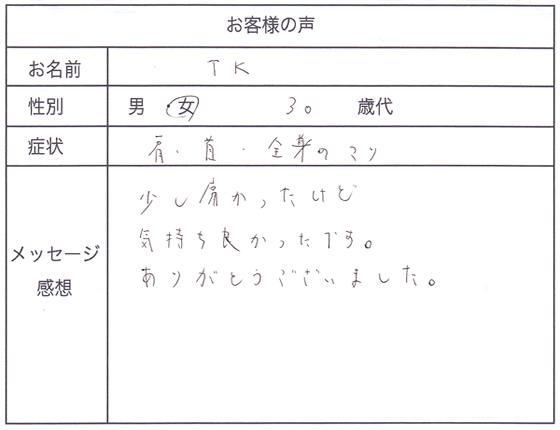 お客様の声
お名前 TK
性別 男・女 30 歳代
症状 肩・首・全身のコリ
メッセージ
感想
少し痛かったけど
気持ち良かったです。
ありがとうございました。